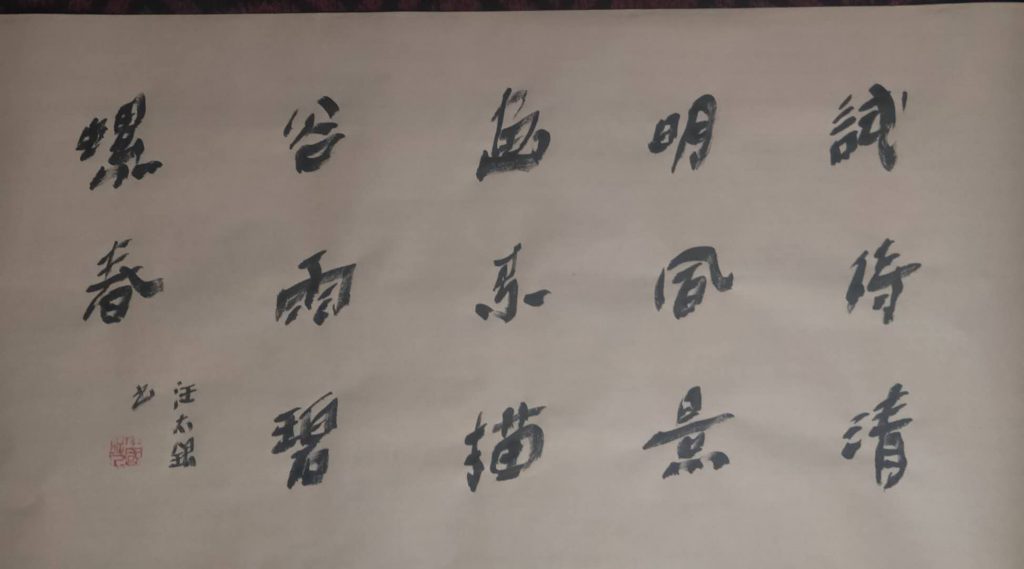 試待清
明風景
画素描
谷雨碧
螺春
汪太銀
书